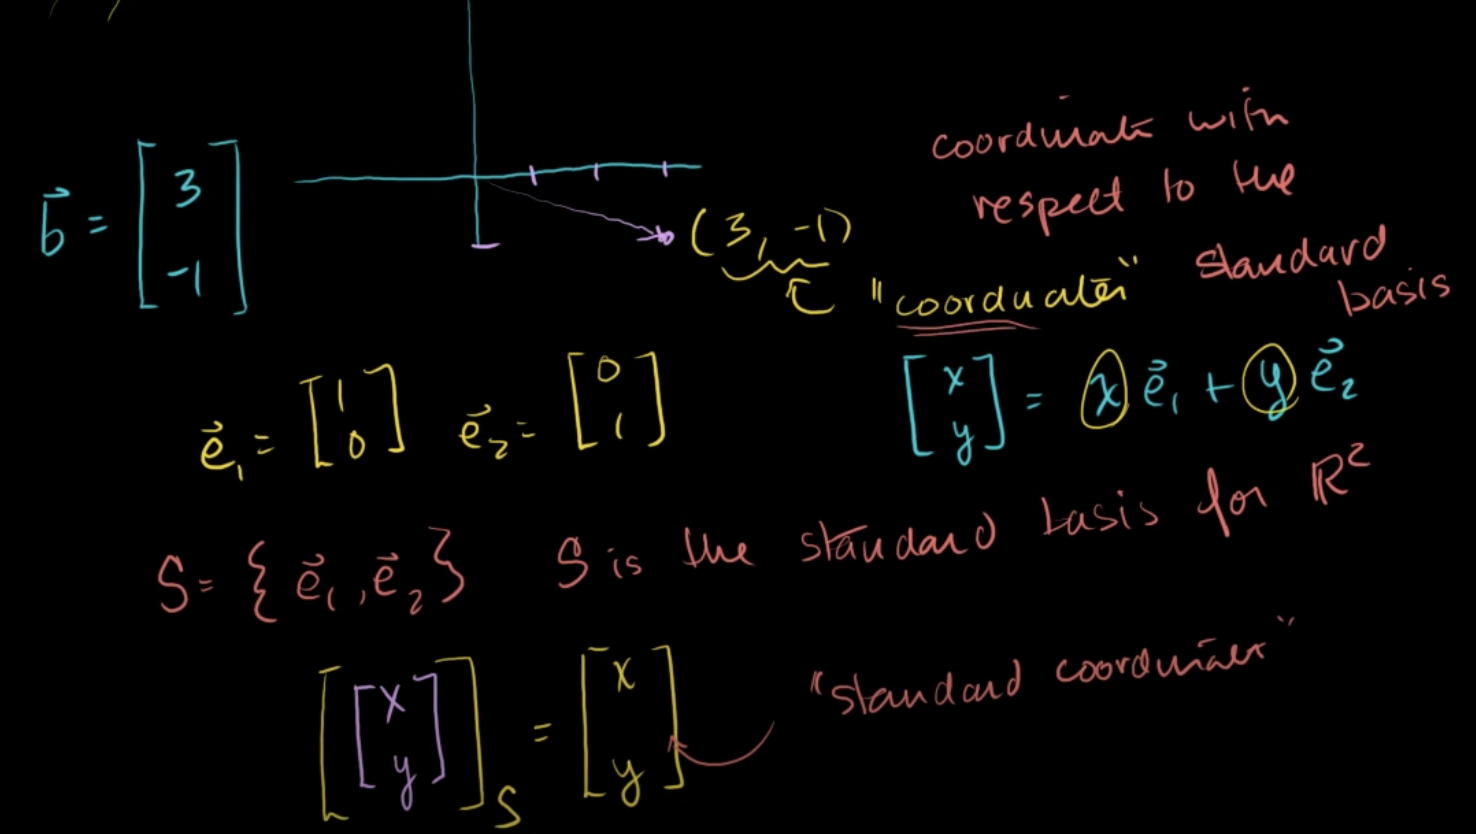 b⃗ = [3 -1]
(3, -1)
coordinate with
respect to the
standard
basis
"coordinates"
e⃗₁ = [1 0] e⃗₂ = [0 1]
[x y] = x e⃗₁ + y e⃗₂
S = { e⃗₁, e⃗₂ } S is the standard basis for ℝ²
[[x y]]_S = [x y]
"standard coordinates"